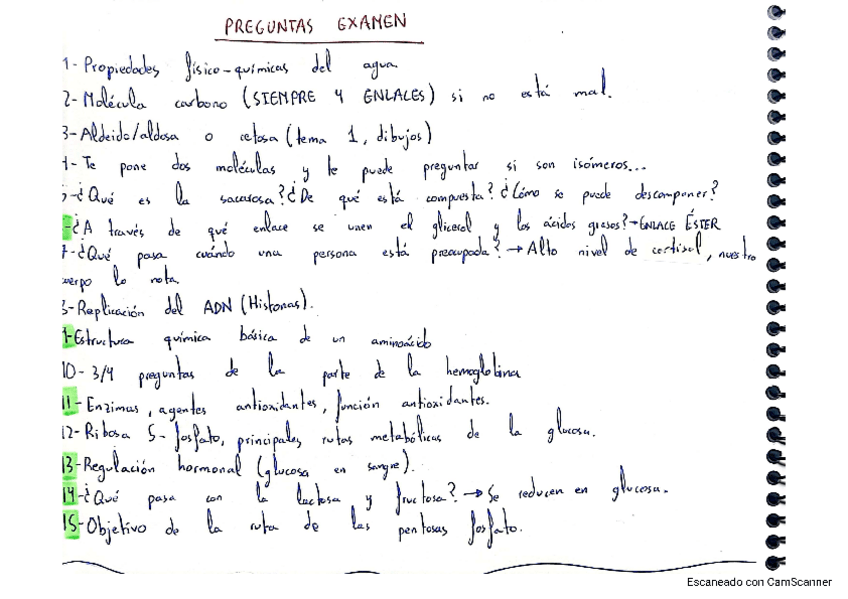 PREGUNTAS EXAMEN
1- Propiedades físico-químicas del agua
2- Molécula carbono (SIEMPRE 4 ENLACES) si no está mal.
3- Aldeído/aldosa o cetosa (tema 1, dibujos)
4- Te pone dos moléculas y te puede preguntar si son isómeros...
5-¿Qué es la sacarosa? ¿De qué está compuesta? ¿Cómo se puede descomponer?
-¿A través de qué enlace se unen el glicerol y los ácidos grasos? → ENLACE ÉSTER
7-¿Qué pasa cuándo una persona está preocupada? → Alto nivel de cortisol, nuestro
cuerpo lo nota.
8-Replicación del ADN (Histonas).
9-Estructura química básica de un aminoácido
10- 3/4 preguntas de la parte de la hemoglobina
11- Enzimas, agentes antioxidantes, función antioxidantes.
12- Ribosa 5-fosfato, principales rutas metabólicas de la glucosa.
13-Regulación hormonal (glucosa en sangre).
14-¿Qué pasa con la lactosa y fructosa? → Se reducen en glucosa.
15-Objetivo de la ruta de las pentosas fosfato.
Escaneado con CamScanner